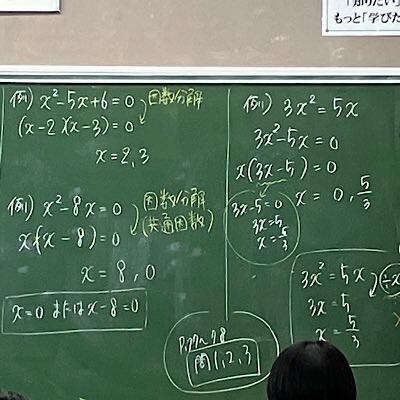 「知りたい」
もっと「学びた
例) x²-5x+6=0
因数分解
(x-2)(x-3)=0
x=2,3
例) x²-8x=0
因数分解
(共通因数)
x(x-8)=0
x=8,0
x=0 または x-8=0
例) 3x²=5x
3x²-5x=0
x(3x-5)=0
x=0, 5/3
3x-5=0
3x=5
x=5/3
3x²=5x
÷x
3x=5
x=5/3
問1,2,3